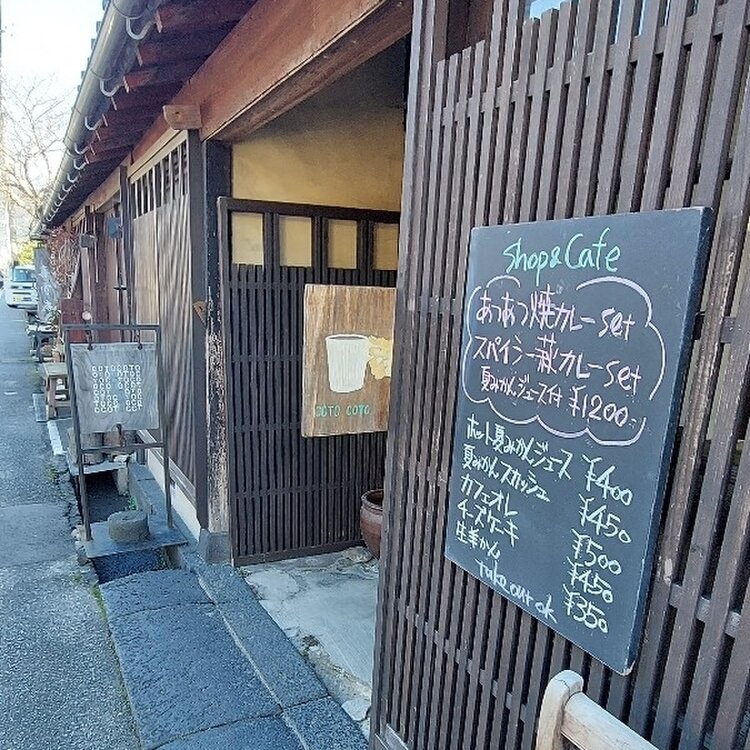 Shop & Cafe
あつあつ焼カレーset
スパイシー萩カレーset
夏みかんジュース付 ¥1200-
ホット夏みかんジュース ¥400
夏みかんスカッシュ ¥450
カフェオレ ¥500
チーズケーキ ¥450
生羊かん ¥350
Take out ok
COTO COTO